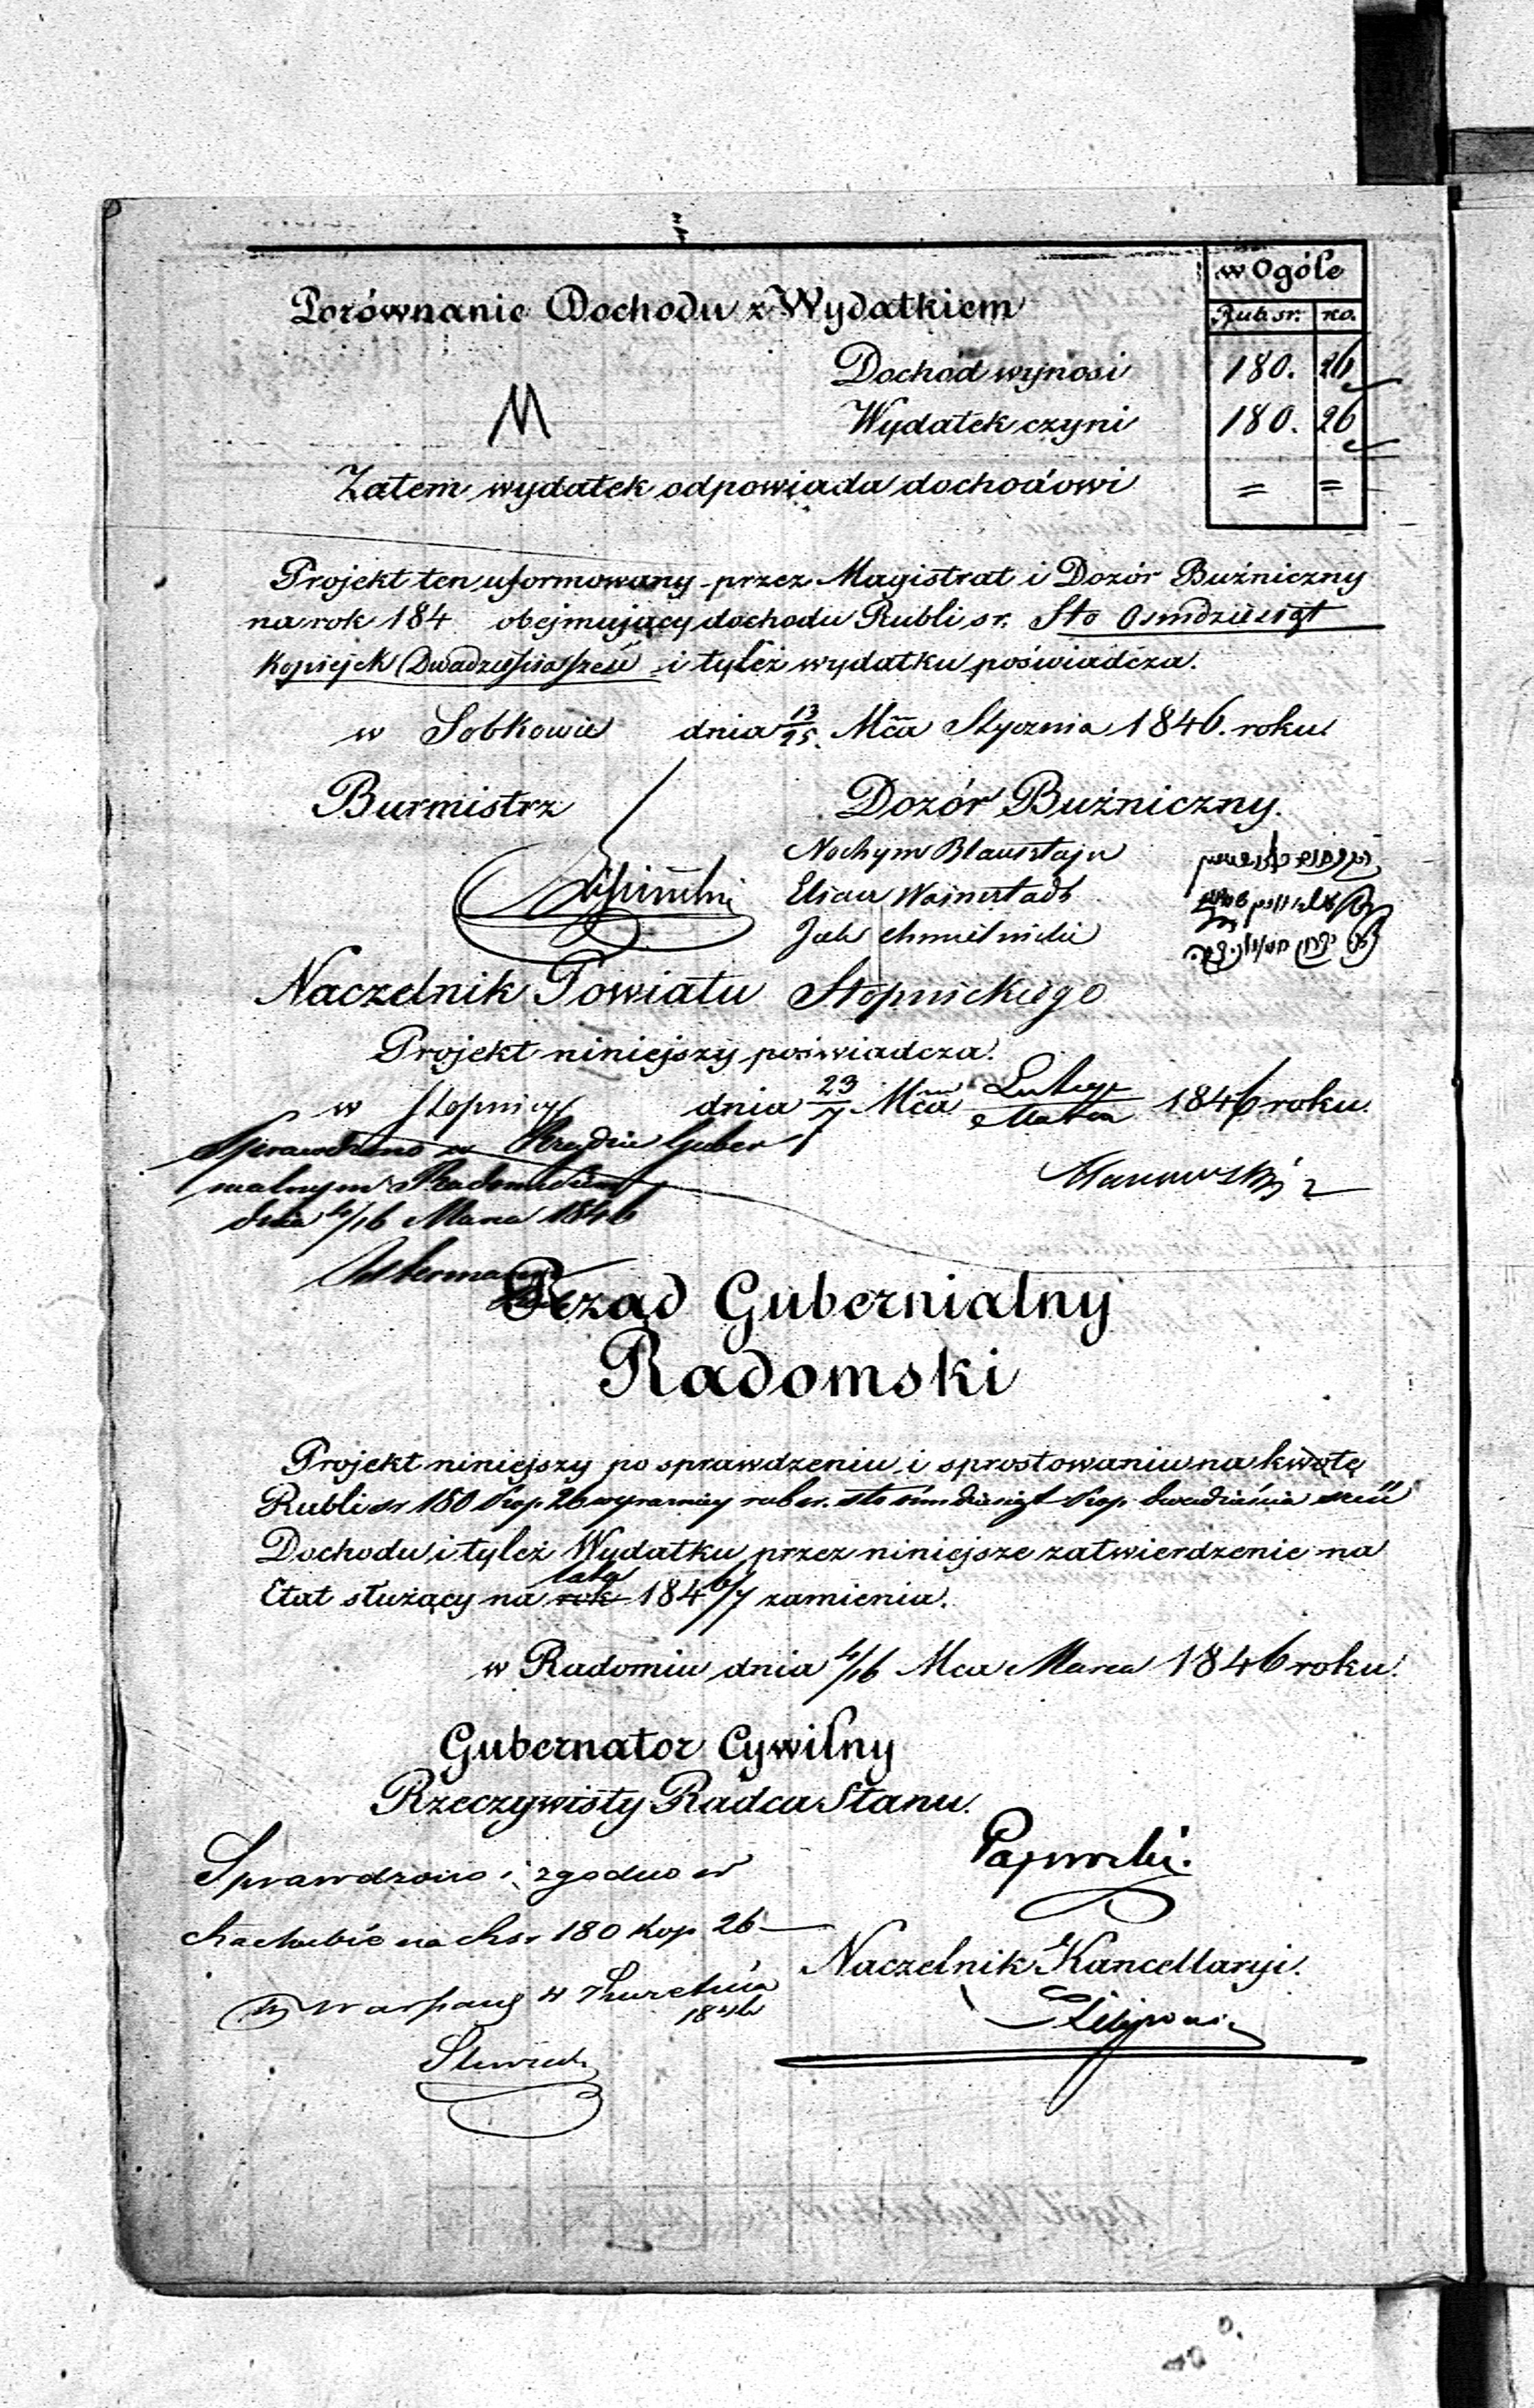 w Ogóle
Porównanie Dochodu z Wydatkiem
Rub. sr. ko.
Dochód wynosi 180. 26
Wydatek czyni 180. 26
Zatem wydatek odpowiada dochodowi = =
Projekt ten uformowany przez Magistrat i Dozór Bużniczny
na rok 184 obejmujący dochodu Rubli sr. Sto Osmdziesiąt
kopiejek Dwadzieścia sześć i tyleż wydatku poświadcza.
w Sobkowie dnia 13/25. Mca Stycznia 1846. roku.
Burmistrz Dozór Bużniczny.
Nochym Blausztajn
Eliasz Wajnsztadt
Jak Chmielnicki
Naczelnik Powiatu Stopnickiego
Projekt niniejszy poświadcza.
w Stopnicy dnia 23/7 Mca Lutego/Marca 1846 roku.
Sprawdzono w Rządzie Guber
nialnym Radomskim
dnia 4/16 Marca 1846
Rząd Gubernialny
Radomski
Projekt niniejszy po sprawdzeniu i sprostowaniu na kwotę
Rubli sr 180 kop 26 wyraźniej rub sr. sto ośmdziesiąt kop dwadzieścia sześć
Dochodu i tyleż Wydatku przez niniejsze zatwierdzenie na
lata
Etat służący na rok 1846/7 zamienia.
w Radomiu dnia 4/16 Mca Marca 1846 roku.
Gubernator Cywilny
Rzeczywisty Radca Stanu.
Sprawdzono i zgodno w
Rachubie na Rsr 180 kop 26
Naczelnik Kancellaryi.
w Kwietnia
1846